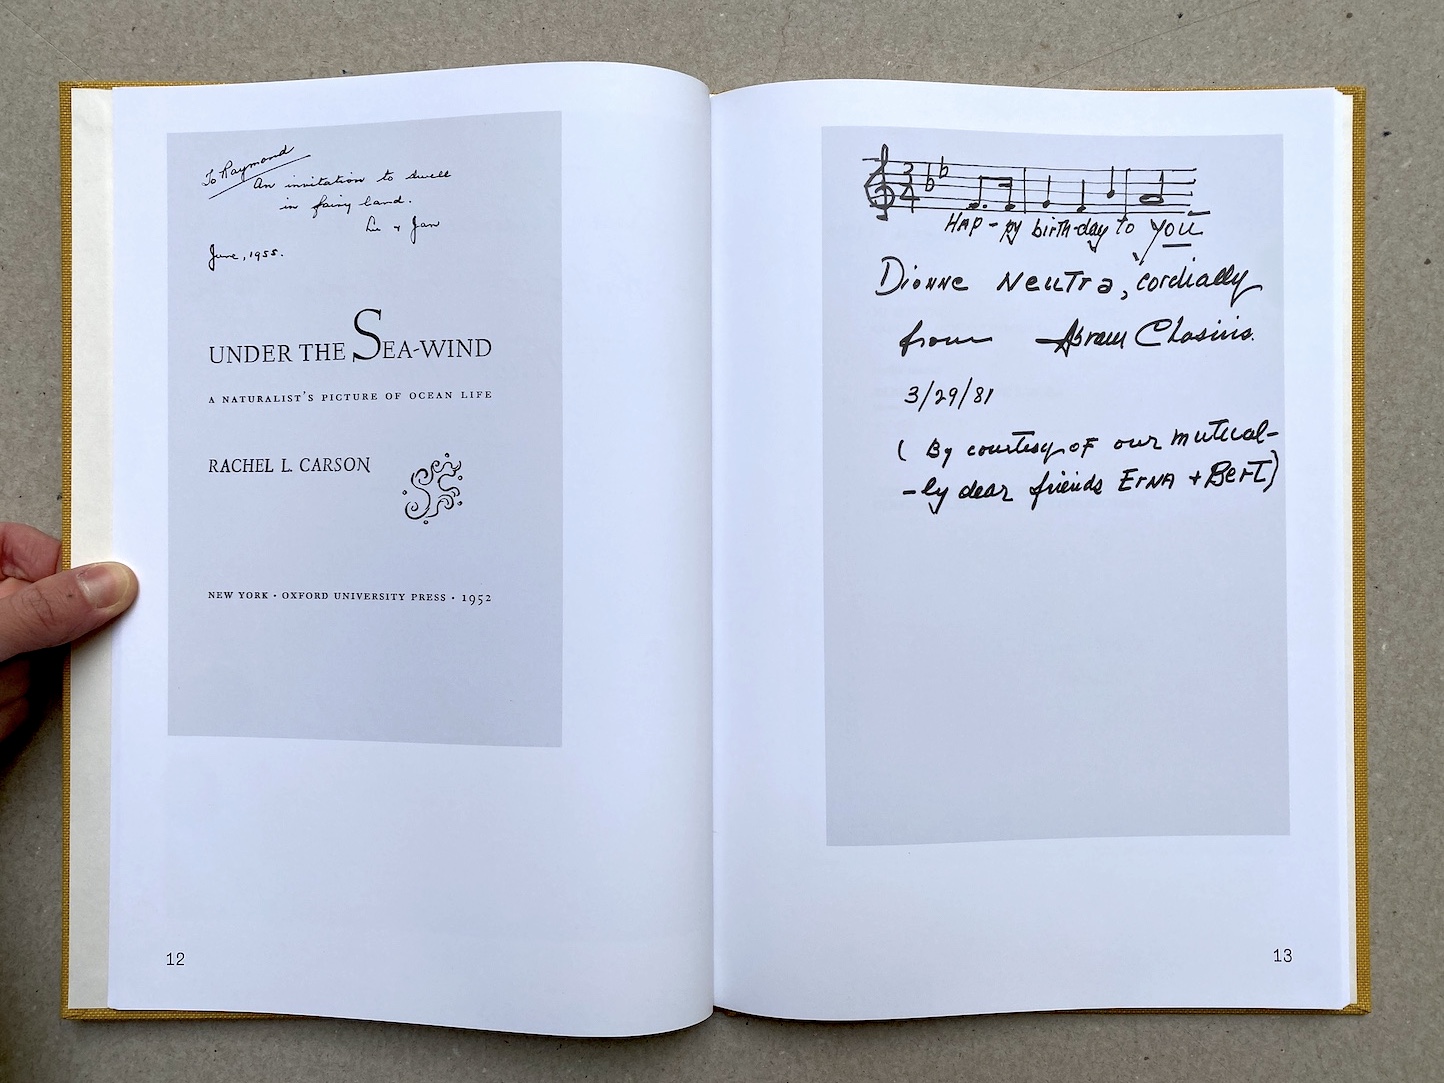 To Raymond
An invitation to dwell
in fairy land.
Liu & Jan
June, 1955.
UNDER THE SEA-WIND
A NATURALIST'S PICTURE OF OCEAN LIFE
RACHEL L. CARSON
NEW YORK · OXFORD UNIVERSITY PRESS · 1952
12
3
4
HAP-py birth-day to YOU
Dionne Neutra, cordially
from Abram Chasins.
3/29/81
( By courtesy of our mutual-
-ly dear friends Erna + Bert)
13